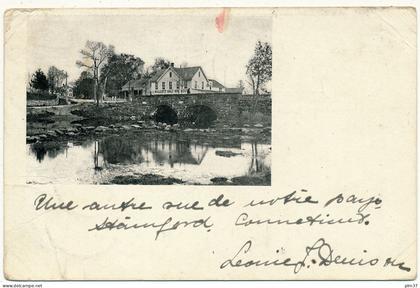 Une autre vue de notre pays
Stamford, Connecticut,
Leonie J. Denison
pim_37